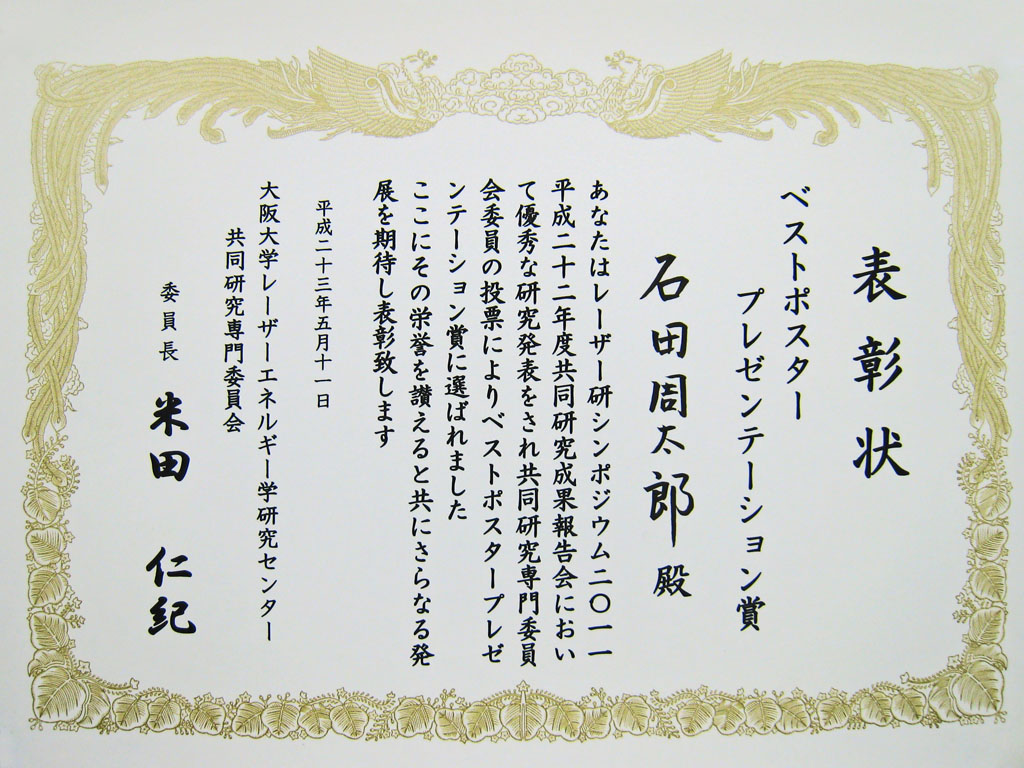 表彰状
ベストポスター
プレゼンテーション賞
石田周太郎 殿
あなたはレーザー研シンポジウム二〇一一
平成二十二年度共同研究成果報告会におい
て優秀な研究発表をされ共同研究専門委員
会委員の投票によりベストポスタープレゼ
ンテーション賞に選ばれました
ここにその栄誉を讃えると共にさらなる発
展を期待し表彰致します
平成二十三年五月十一日
大阪大学レーザーエネルギー学研究センター
共同研究専門委員会
委員長 米田 仁紀